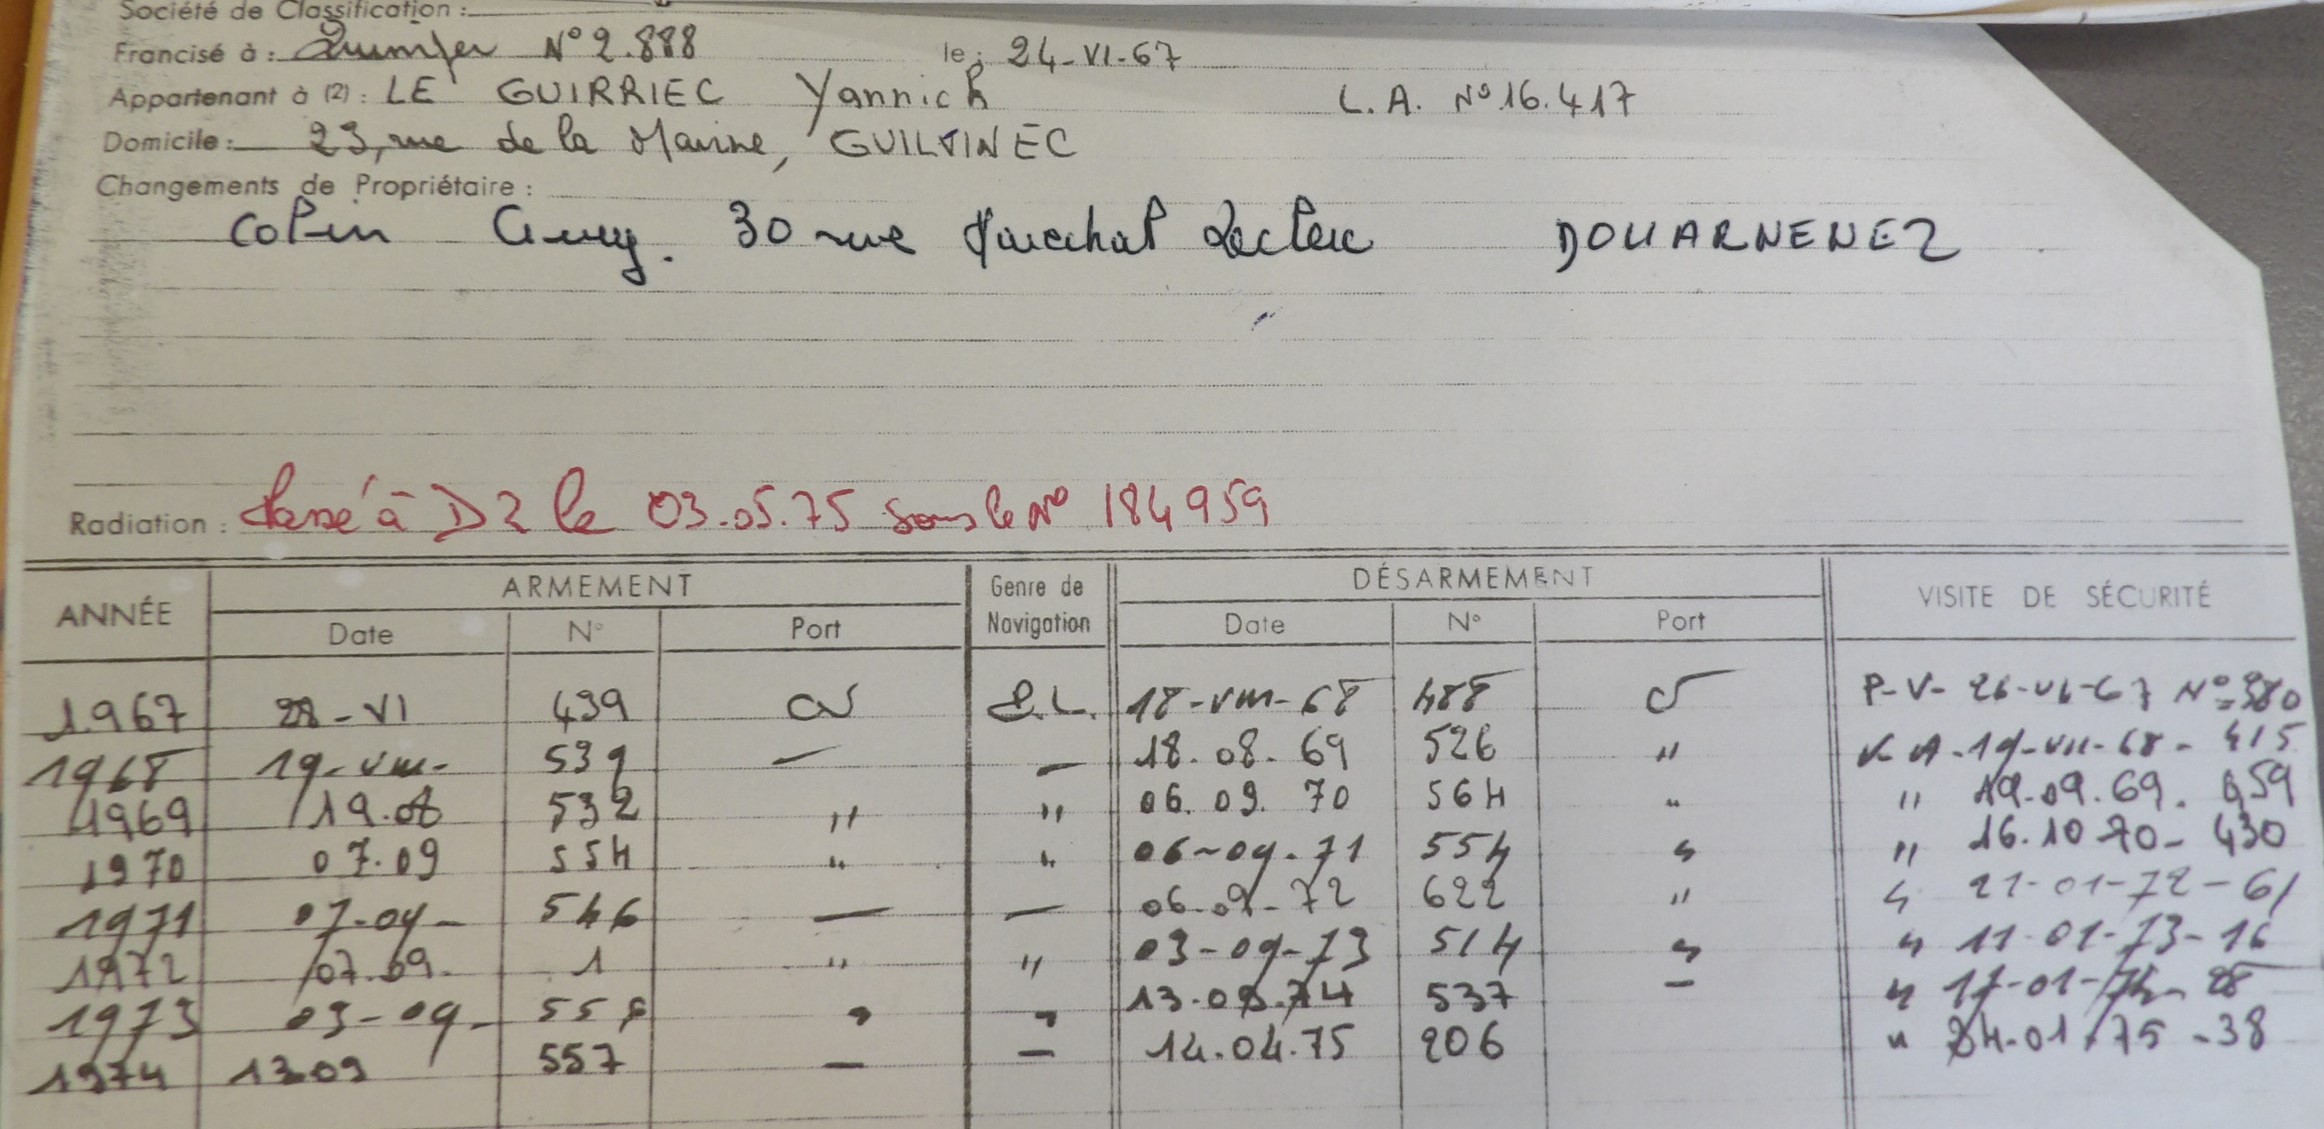 Société de Classification :
Francisé à : Quimper N° 2.888 le : 24-VI-67
Appartenant à (2) : LE GUIRRIEC Yannick L.A. N° 16.417
Domicile : 23, rue de la Marine, GUILVINEC
Changements de Propriétaire :
Colin Guy. 30 rue Marechal Leclerc DOUARNENEZ
Radiation : Passé à D2 le 03.05.75 sous le N° 184959
ANNÉE ARMEMENT Genre de Navigation DÉSARMEMENT VISITE DE SÉCURITÉ
Date N° Port Date N° Port
1967 28-VI 439 P.L. 18-VIII-68 488 P-V- 26-VI-67 N° 380
1968 19-VIII- 539 — — 18.08.69 526 " V.A. 19-VII-68 - 415
1969 19.08 532 " " 06.09.70 564 " " 19.09.69. 459
1970 07.09 554 " " 06-09-71 554 " " 16.10 70- 430
1971 07-09- 546 — — 06.09-72 622 " " 21-01-72-61
1972 07.09. 1 " " 03-09-73 514 " " 11-01-73-16
1973 03-09- 558 " " 13.09.74 537 — " 17-01-74-28
1974 13 09 557 — — 14.04.75 206 " 24-01-75-38